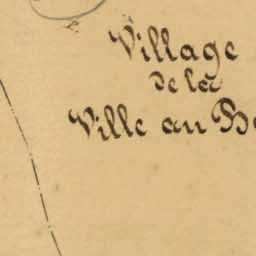 Village
de la
Ville au